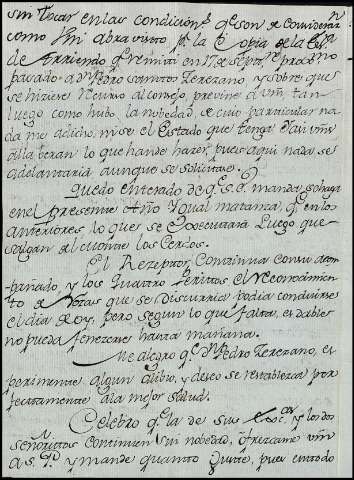 sin tocar en las condicion.s q.e son de considerar
como Vm abra visto p.r la Copia de la Es.ra
de Arriendo q.e remiti en 11 de Sept.re prox.mo
pasado a D.n Pedro Santos Terezano, y sobre que
se hiziese recurso al consejo, previne a Vm tan
luego como hubo la nobedad, de cuio particular na
da me a dicho, ni se el Estado que tenga, Vms
alla beran lo que han de hazer, pues aqui nada se
adelantaria aunque se solicitare.
Quedo enterado de q.e S.E. manda se haga
en el presente Año Ygual matanza q.e en los
anteriores lo que se Executará Luego que
salgan al cumun los Cerdos.
El Rezeptor, Continua con su
y los quatro Peritos el reconocimien
to de Rozas que se Discurria podia concluirse
el dia de oy, pero segun lo que falta, es dable
no pueda fenezerse hasta mañana.
Me alegro q.e D.n Pedro Terezano, es
perimente algun alibio, y deseo se restablezca por
fectamente a la mejor salud.
Celebro q.e la de sus Exc.as y los dos
Señoritos continuen sin nobedad, ofrezcame Vm
a S. P. y mande quanto guste, pues en todo